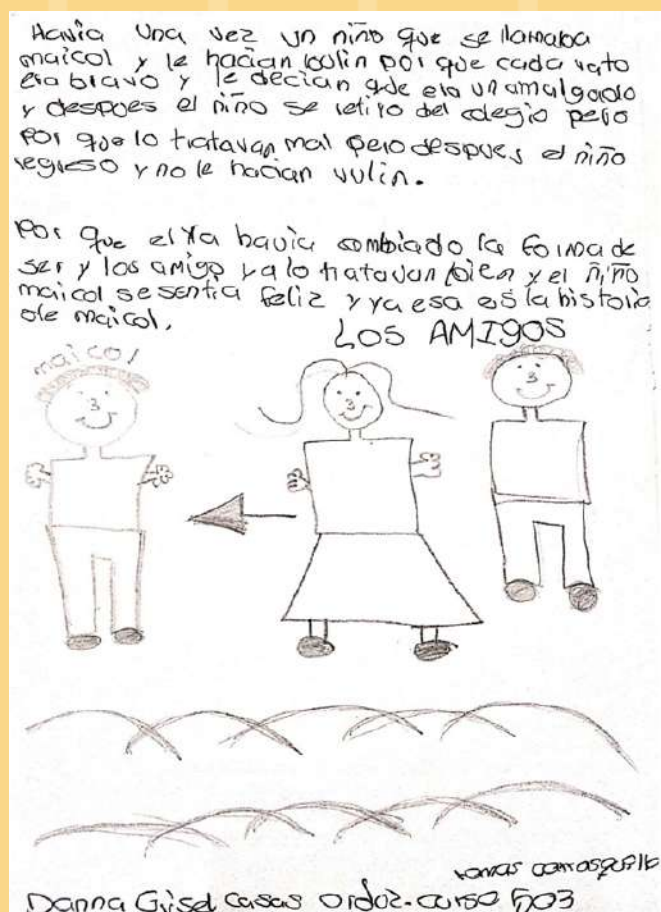 Havia Una vez un niño que se llamaba
maicol y le hacian bulin por que cada rato
era bravo y le decian que era un amalgado
y despues el niño se retiro del colegio pero
Por que lo tratavan mal pero despues el niño
regreso y no le hacian vulin.
Por que el Ya havia combiado la forma de
ser y los amigo ya lo tratavan bien y el niño
maicol se sentia feliz y ya esa es la historia
de maicol.
LOS AMIGOS
maicol
tomas carrasquilla
Danna Gisel casas ordoz-curso 503